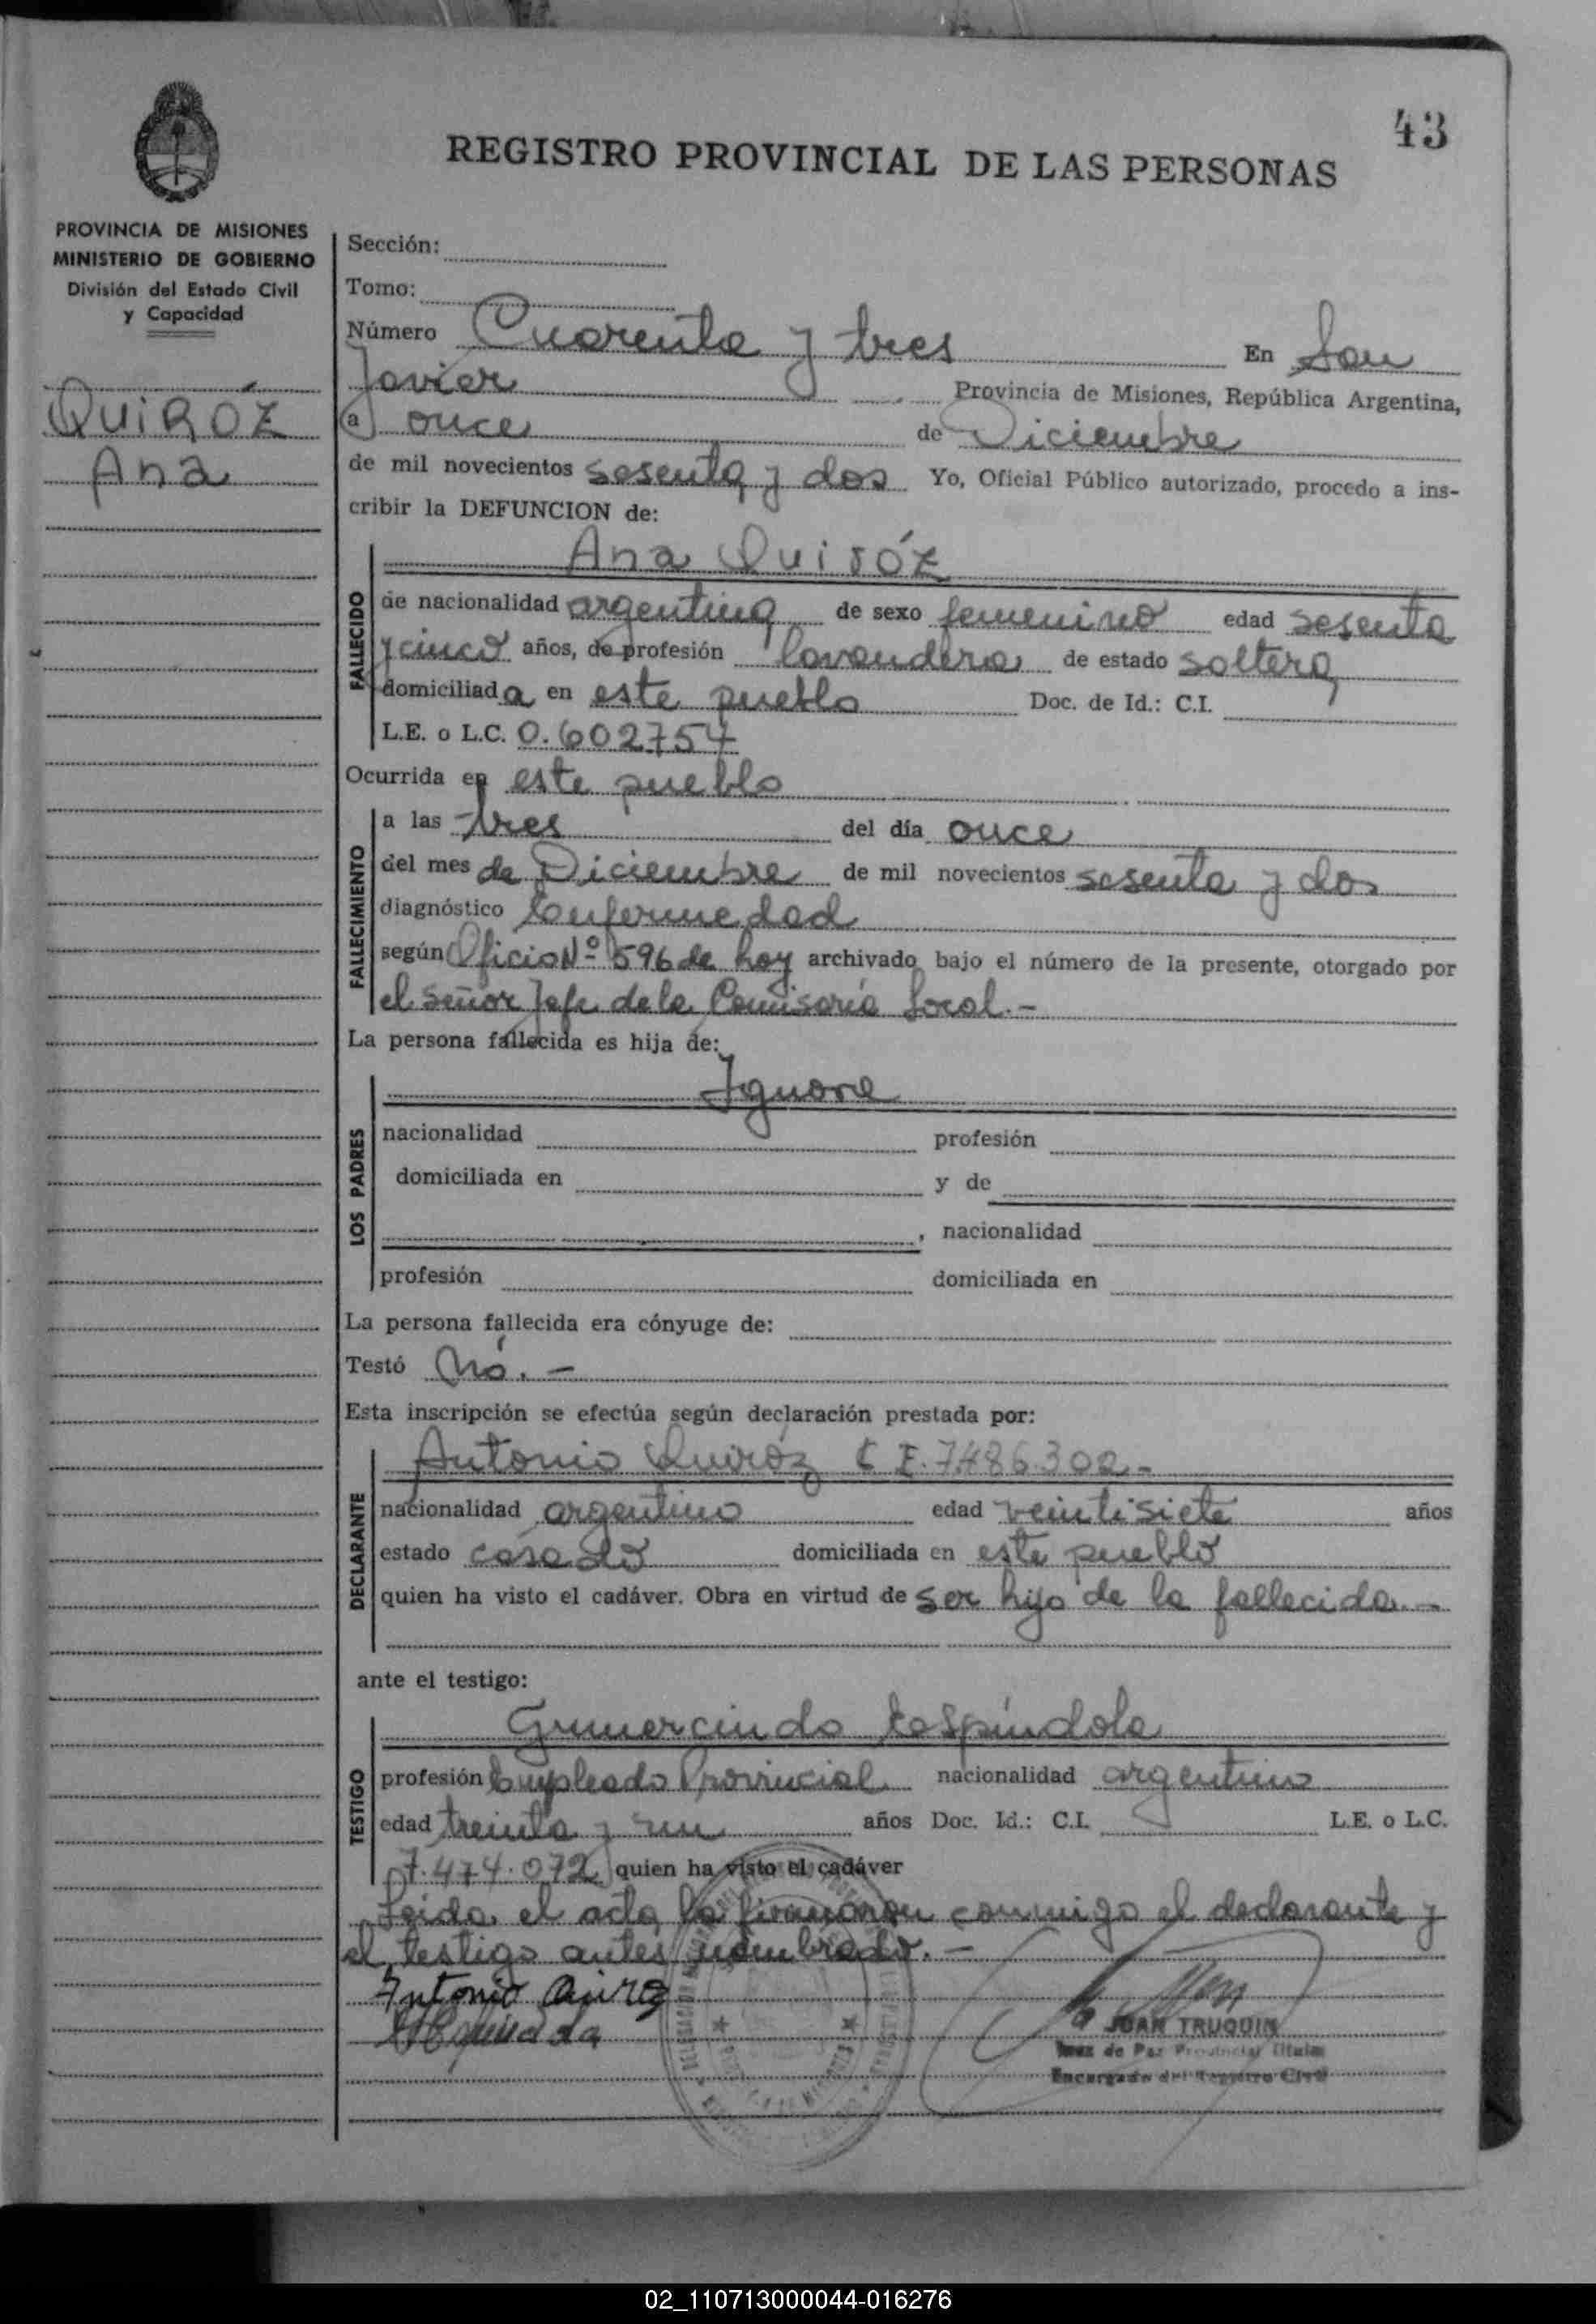 43
REGISTRO PROVINCIAL DE LAS PERSONAS
PROVINCIA DE MISIONES
MINISTERIO DE GOBIERNO
División del Estado Civil
y Capacidad
QUIRÓZ
Ana
Sección:
Tomo:
Número Cuarenta y tres En San
Javier Provincia de Misiones, República Argentina,
a once de Diciembre
de mil novecientos sesenta y dos Yo, Oficial Público autorizado, procedo a ins-
cribir la DEFUNCION de:
FALLECIDO
Ana Quiróz
de nacionalidad argentina de sexo femenino edad sesenta
y cinco años, de profesión lavandera de estado soltera
domiciliada en este pueblo Doc. de Id.: C.I.
L.E. o L.C. 0.602754
Ocurrida en este pueblo
FALLECIMIENTO
a las tres del día once
del mes de Diciembre de mil novecientos sesenta y dos
diagnóstico Enfermedad
según Oficio Nº 596 de hoy archivado bajo el número de la presente, otorgado por
el Señor Jefe de la Comisaría Local.-
La persona fallecida es hija de:
LOS PADRES
Ignora
nacionalidad profesión
domiciliada en y de
, nacionalidad
profesión domiciliada en
La persona fallecida era cónyuge de:
Testó No.-
Esta inscripción se efectúa según declaración prestada por:
DECLARANTE
Antonio Quiróz L E. 7.486.302-
nacionalidad argentino edad veintisiete años
estado casado domiciliada en este pueblo
quien ha visto el cadáver. Obra en virtud de ser hijo de la fallecida.-
ante el testigo:
TESTIGO
Gumercindo Espíndola
profesión Empleado Provincial nacionalidad argentino
edad treinta y un años Doc. Id.: C.I. L.E. o L.C.
7.474.072 quien ha visto el cadáver
Leida el acta la firmaron conmigo el declarante y
el testigo antes nombrado.-
Antonio Quiroz
JUAN TRUQUIN
Juez de Paz Provincial Titular
Encargado del Registro Civil
02_110713000044-016276